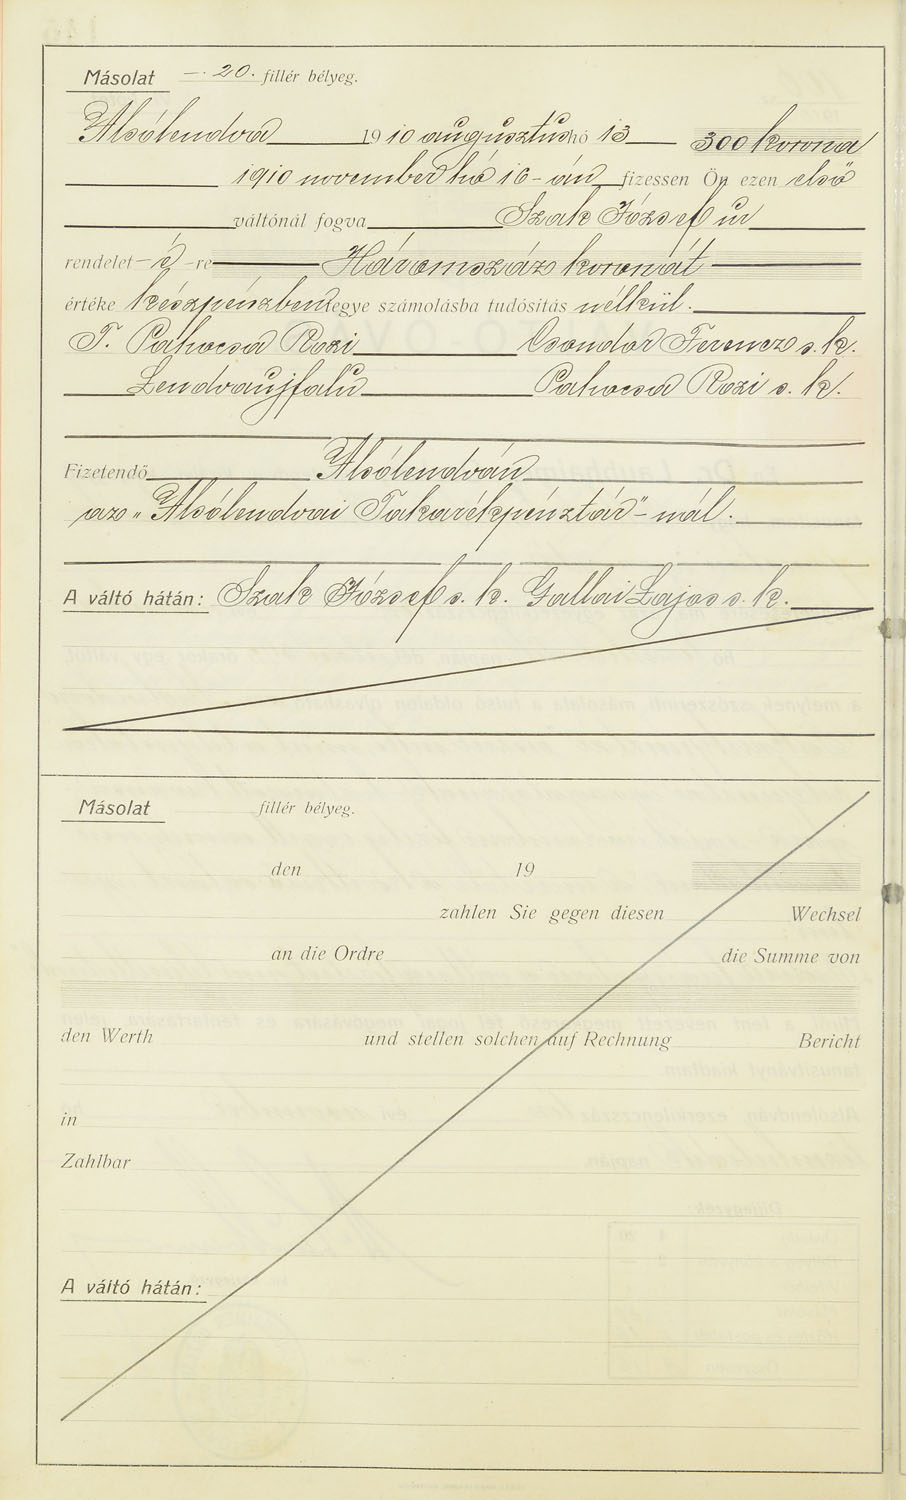 Másolat —.20. fillér bélyeg.
Alsólendva 1910 augusztus hó 13 300 korona
1910 november hó 16-án fizessen Ön ezen első
váltónál fogva Szak József úr
rendelet-é-re Háromszáz koronát
értéke készpénzben tegye számolásba tudósítás nélkül.
T. Pahocsa Rozi Csondor Ferencz s. k.
Lendvaujfalu Pahocsa Rozi s. k.
Fizetendő Alsólendván
az „Alsólendvai Takarékpénztár"-nál.
A váltó hátán: Szak József s. k. Gallai Lajos s. k.
Másolat fillér bélyeg.
den 19
zahlen Sie gegen diesen Wechsel
an die Ordre die Summe von
den Werth und stellen solchen auf Rechnung Bericht
in
Zahlbar
A váltó hátán: